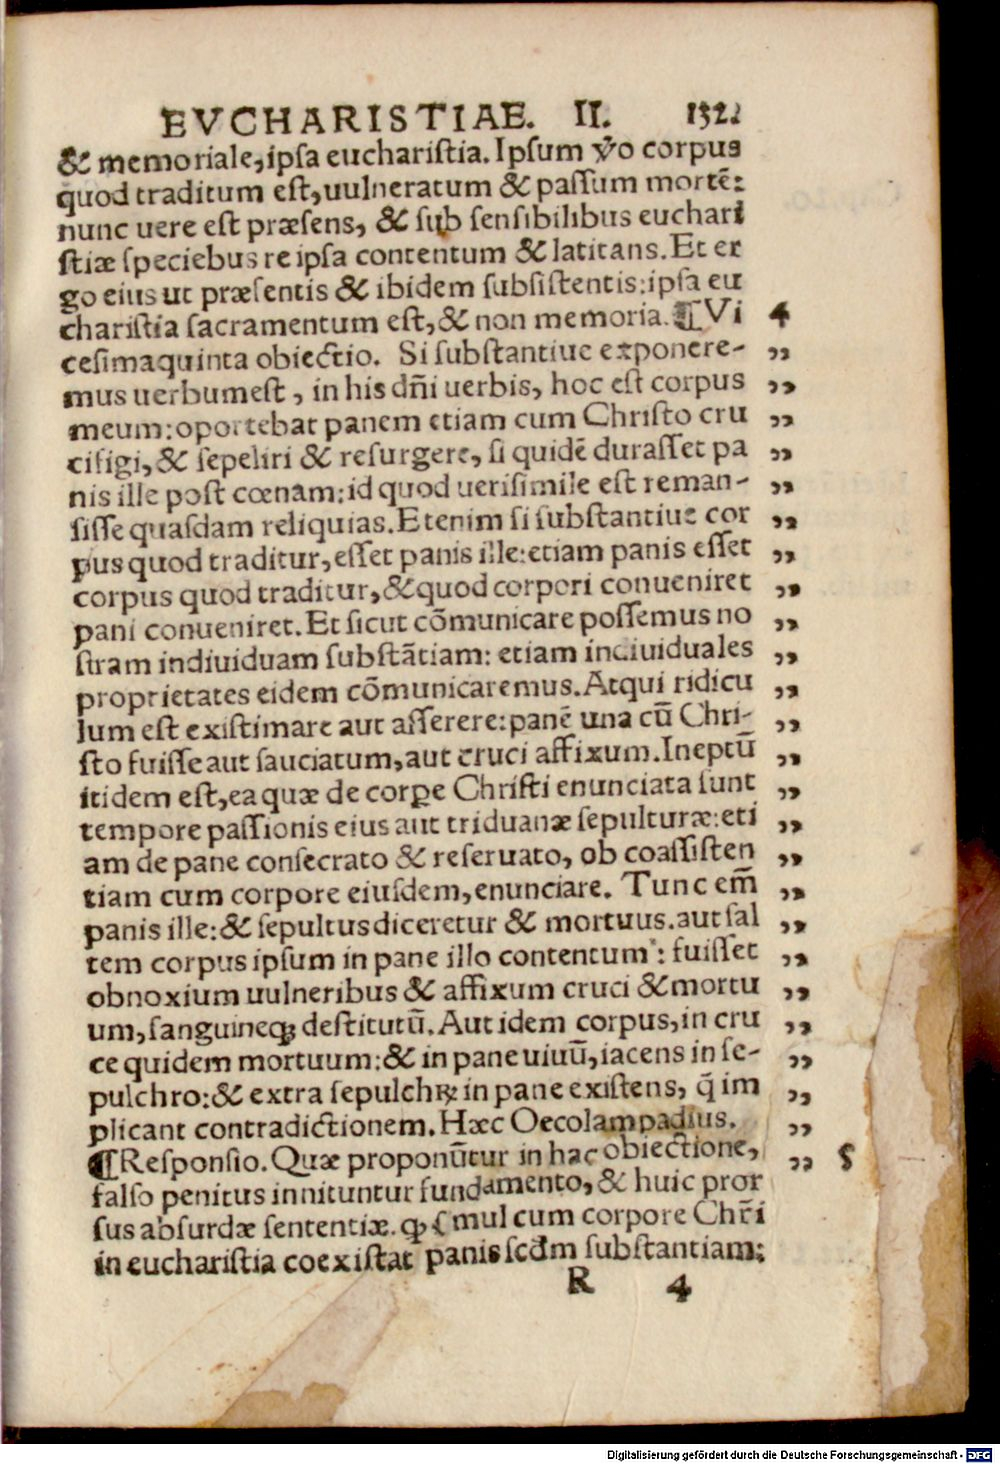 EVCHARISTIAE. II. 132.
& memoriale,ipsa eucharistia.Ipsum v̓o corpus
quod traditum est,uulneratum & passum mortē:
nunc uere est præsens, & sub sensibilibus euchari
stiæ speciebus re ipsa contentum & latitans.Et er
go eius ut præsentis & ibidem subsistentis:ipsa eu
charistia sacramentum est,& non memoria.¶Vi 4
cesimaquinta obiectio. Si substantiue exponere- ,,
mus uerbumest, in his dñi uerbis, hoc est corpus ,,
meum:oportebat panem etiam cum Christo cru ,,
cifigi,& sepeliri & resurgere, si quidē durasset pa ,,
nis ille post cœnam:id quod uerisimile est reman- ,,
sisse quasdam reliquias.Etenim si substantiue cor ,,
pus quod traditur,esset panis ille:etiam panis esset ,,
corpus quod traditur,&quod corpori conueniret ,,
pani conueniret.Et sicut cōmunicare possemus no ,,
stram indiuiduam substātiam: etiam indiuiduales ,,
proprietates eidem cōmunicaremus.Atqui ridicu ,,
lum est existimare aut asserere:panē una cū Chri- ,,
sto fuisse aut sauciatum,aut cruci affixum.Ineptū ,,
itidem est,ea quæ de corpe Christi enunciata sunt ,,
tempore passionis eius aut triduanæ sepulturæ:eti ,,
am de pane consecrato & reseruato, ob coassisten ,,
tiam cum corpore eiusdem,enunciare. Tunc em̄ ,,
panis ille:& sepultus diceretur & mortuus.aut sal ,,
tem corpus ipsum in pane illo contentum: fuisset ,,
obnoxium uulneribus & affixum cruci &mortu ,,
um,sanguineqꝫ destitutū.Aut idem corpus,in cru ,,
ce quidem mortuum:& in pane uiuū,iacens in se- ,,
pulchro:& extra sepulchꝝ in pane existens, q̄ im ,,
plicant contradictionem.Hæc Oecolampadius. ,,
¶Responsio.Quæ proponūtur in hac obiectione, ,, 5
falso penitus innituntur fundamento,& huic pror
sus absurdæ sententiæ.ꝙ simul cum corpore Chr̄i
in eucharistia coexistat panis scđm substantiam:
R 4
Digitalisierung gefördert durch die Deutsche Forschungsgemeinschaft - DFG